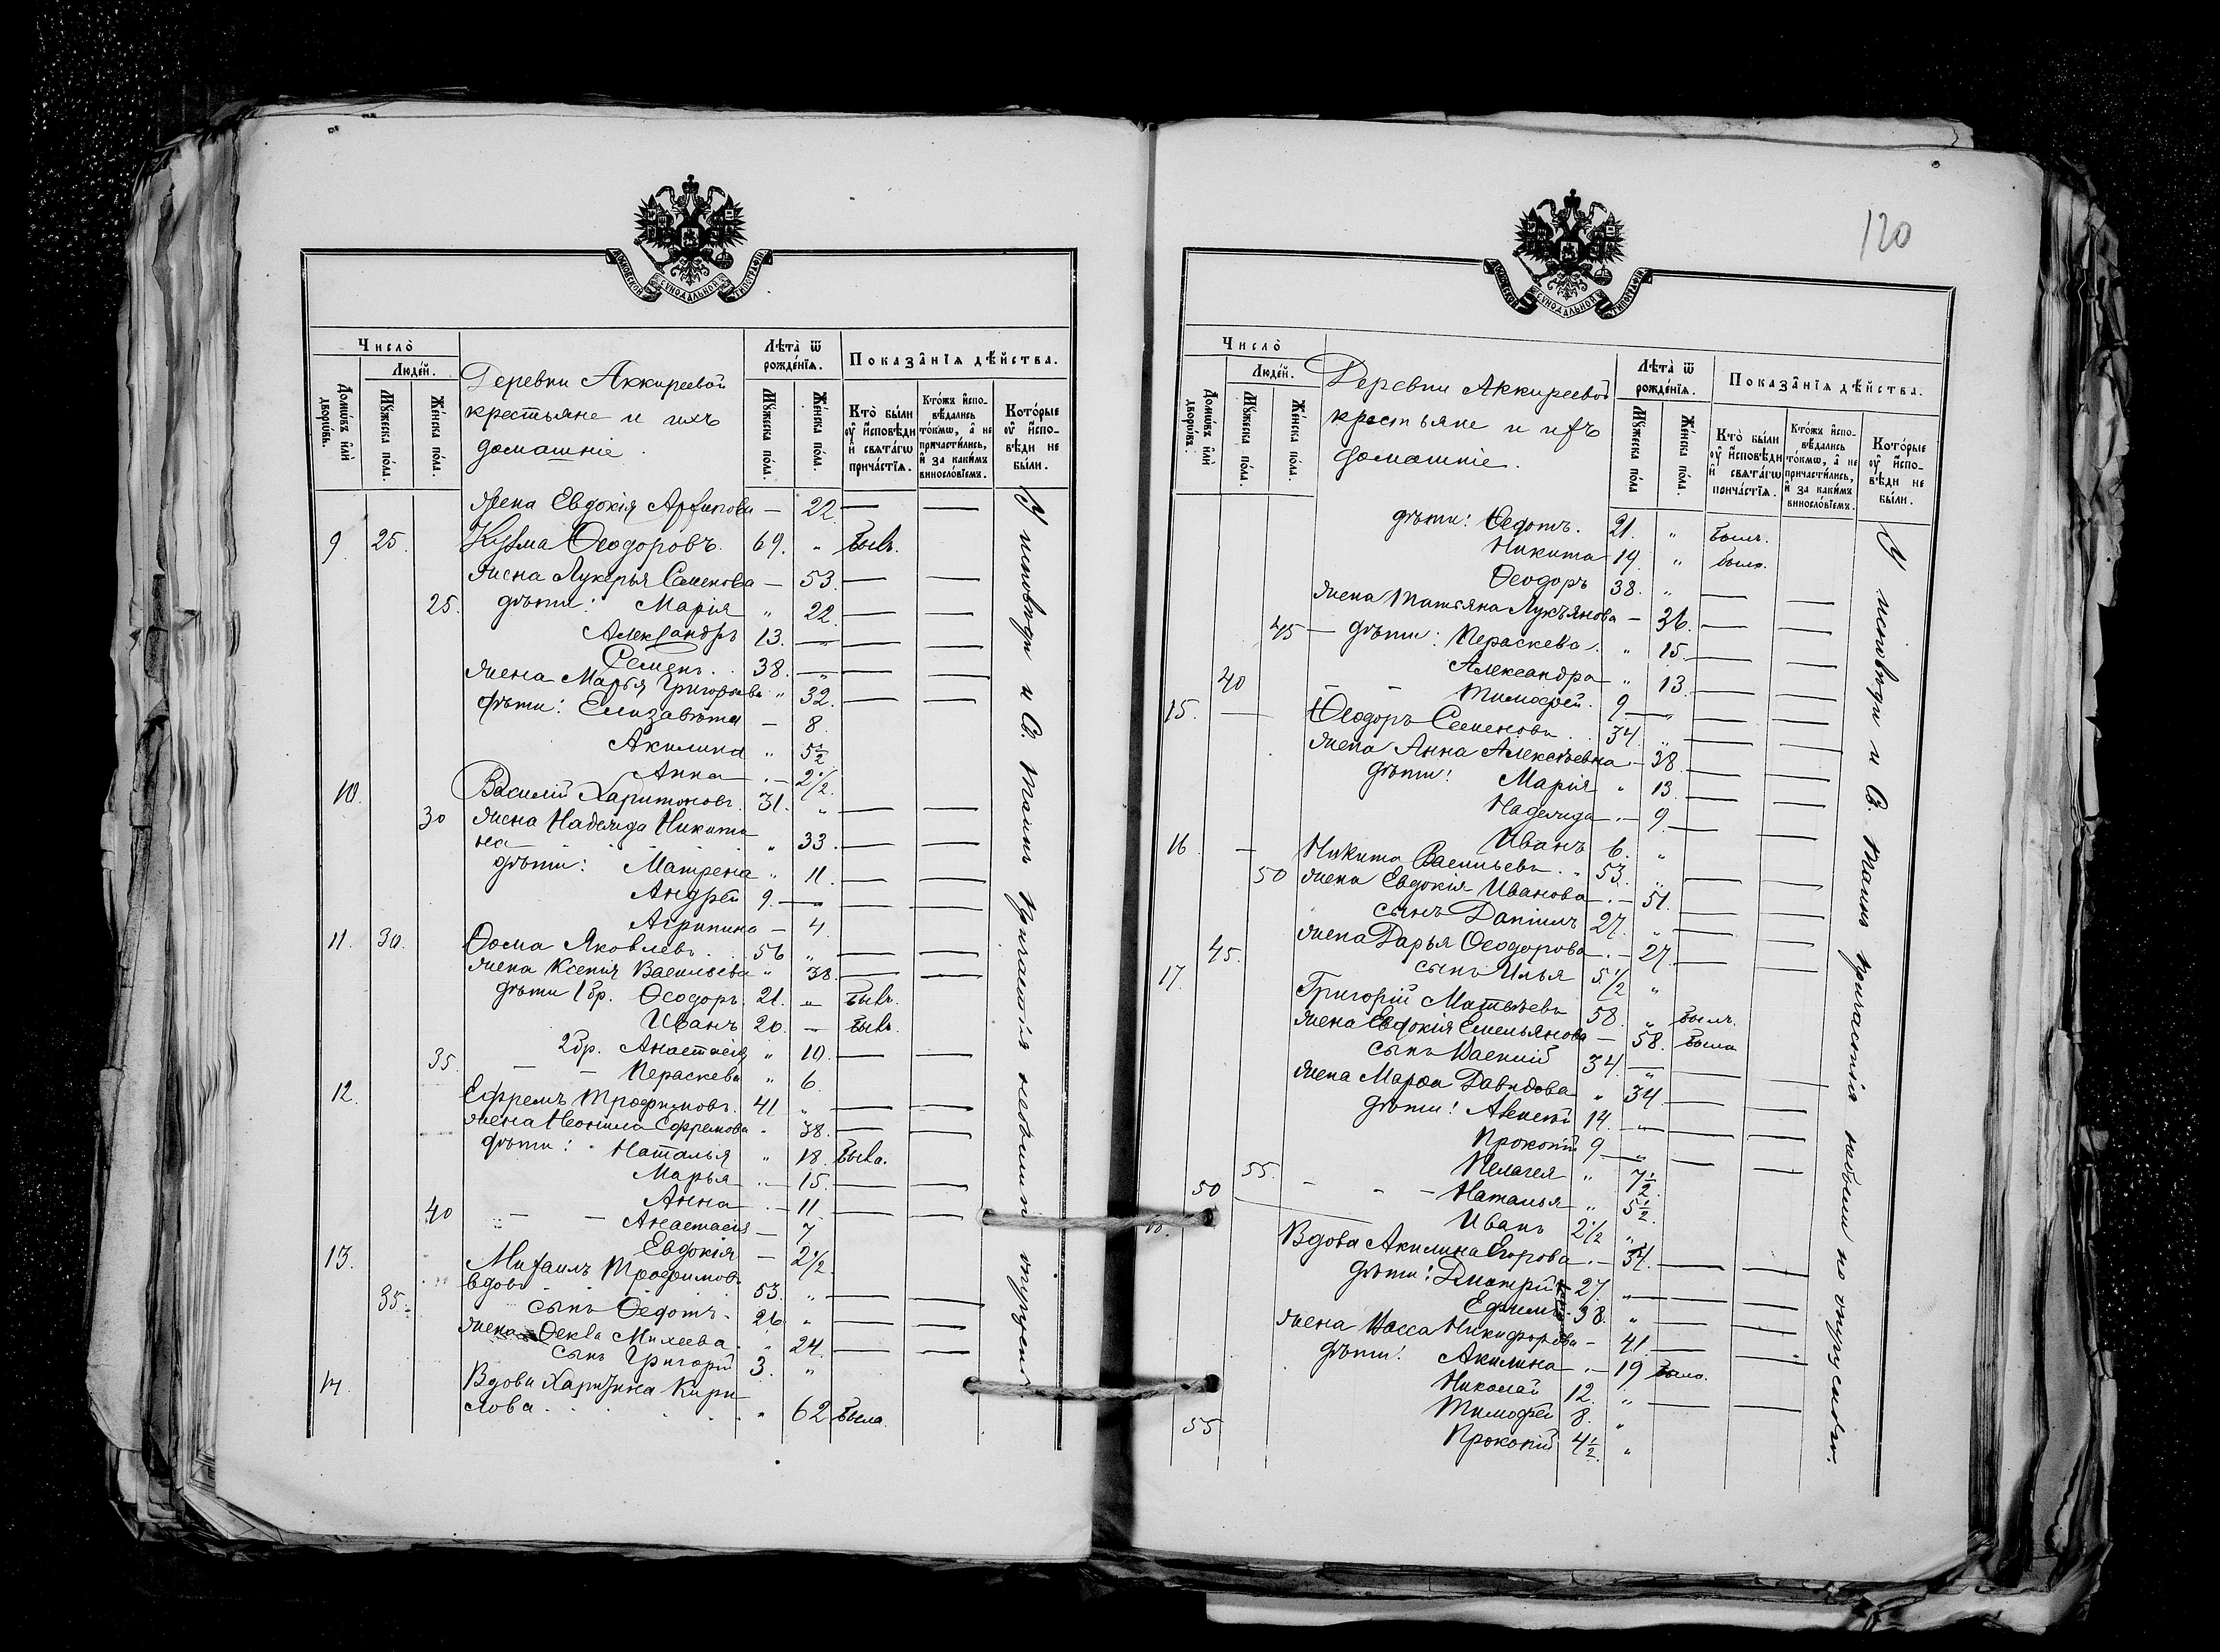 МОСКОВСКОЙ СѴНОДАЛЬНОЙ ТИПОГРАФІИ
Число̀
Людей.
Домѡвъ илѝ дворѡвъ.
Мꙋжеска пола.
Женска пола.
Деревни Аккиреевой
крестьяне и ихъ
домашніе.
Лѣта̀ ѿ рожденїѧ.
Мꙋжеска пола.
Женска пола.
Показанїѧ дѣйства.
Кто̀ были ᲂу҆ исповѣди и свѧтагѡ причастїѧ.
Ктожъ исповѣдались токмѡ, а не причастились, и за какимъ винословїемъ.
Которые ᲂу҆ исповѣди не были.
жена Евдокія — 22 — —
9. 25. Кузма Ѳеодоровъ. 69. „ былъ.
жена Лукерья Семенова — 53 — —
25. дѣти: Марія „ 22 — —
Александръ 13. — — —
Семенъ. 38. — „ — —
жена Марья Григорьева „ 32. — —
дѣти: Елизавета — 8.
Акилина „ 5½
Анна — 2½
10. Василій Харитоновъ. 31. „ — —
30 жена Надежда Никити
на „ 33. — —
дѣти: Матрена „ 11. — —
Андрей 9. — — —
Агрипина — 4.
11. 30. Ѳома Яковлевъ. 56 „ — —
жена Ксенія Васильева „ 38. — —
дѣти 1 бр. Ѳеодоръ. 21. „ былъ.
Иванъ 20. — былъ.
2 бр. Анастасія „ 10. — —
35. — — Параскева „ 6.
12. Ефремъ Трофимовъ. 41 „ — —
жена Неонила Ефремова „ 38. — —
дѣти: Наталья „ 18. была.
Марья — 15. — —
Анна — 11 — —
40 — — Анастасія — 7
Евдокія — 2½
13. Михаилъ Трофимовъ
вдовъ 53. „ — —
35. сынъ Ѳедотъ. 26 „ — —
жена Ѳекла Михеева „ 24. — —
сынъ Григорій 3. „
14. Вдова Харитина Кири
лова „ 62 была.
У исповѣди и Св. Таинъ причастія небыли по опущенію
120
МОСКОВСКОЙ СѴНОДАЛЬНОЙ ТИПОГРАФІИ
Число̀
Людей.
Домѡвъ илѝ дворѡвъ.
Мꙋжеска пола.
Женска пола.
Деревни Аккиреевой
крестьяне и ихъ
домашніе.
Лѣта̀ ѿ рожденїѧ.
Мꙋжеска пола
Женска пола.
Показанїѧ дѣйства.
Кто̀ были ᲂу҆ исповѣди и свѧтагѡ причастїѧ.
Ктожъ исповѣдались токмѡ, а не причастились, и за какимъ винословїемъ.
Которые ᲂу҆ исповѣди не были.
дѣти: Ѳедотъ. 21. „ былъ.
Никита 19. „ былъ.
Ѳеодоръ 38. „ — —
жена Татьяна Лукьянова — 36. — —
45 — дѣти: Пераскева. „ 15 — —
Александра „ 13. — —
40 — — Тимофей. 9 — — —
15. — Ѳеодоръ Семеновъ. 34. „ — —
жена Анна Алексѣевна — 38. — —
дѣти: Марія „ 13. — —
Надежда — 9. — —
Иванъ 6. „
16 — Никита Васильевъ. 53. „ — —
50 жена Евдокія Иванова — 51. — —
сынъ Даніилъ 27. „ — —
жена Дарья Ѳеодорова — 27. — —
45. сынъ Илья 5½ „
17. Григорій Матвѣевъ 58. „ былъ.
жена Евдокія Емельянова — 58. была
сынъ Василій 34. „ — —
жена Марѳа Давидова „ 34 — —
дѣти: Алексѣй 14. „ — —
Прокопій 9 — „ — —
55. Пелагея „ 7½
50 — — — Наталья „ 5½.
Иванъ 2½ „
Вдова Акилина Егорова — 54. — —
дѣти: Дмитрій 27 „ — —
Ефимъ 38. „ — —
жена Васса Никифорова — 41 — —
дѣти: Акилина — 19 была.
Николай 12. „ — —
Тимофей 8. „
55 Прокопій 4½. „
У исповѣди и Св. Таинъ причастія небыли по опущенію.